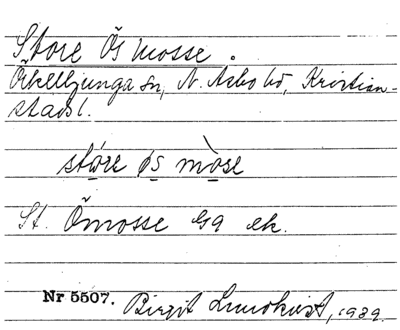 Store Ös mosse.
Örkelljunga sn, N. Åsbo hd, Kristian-
stads l.
støre øs mòse
St. Ömosse G9 ek.
Nr 5507. Birgit Lundkvist, 1939.